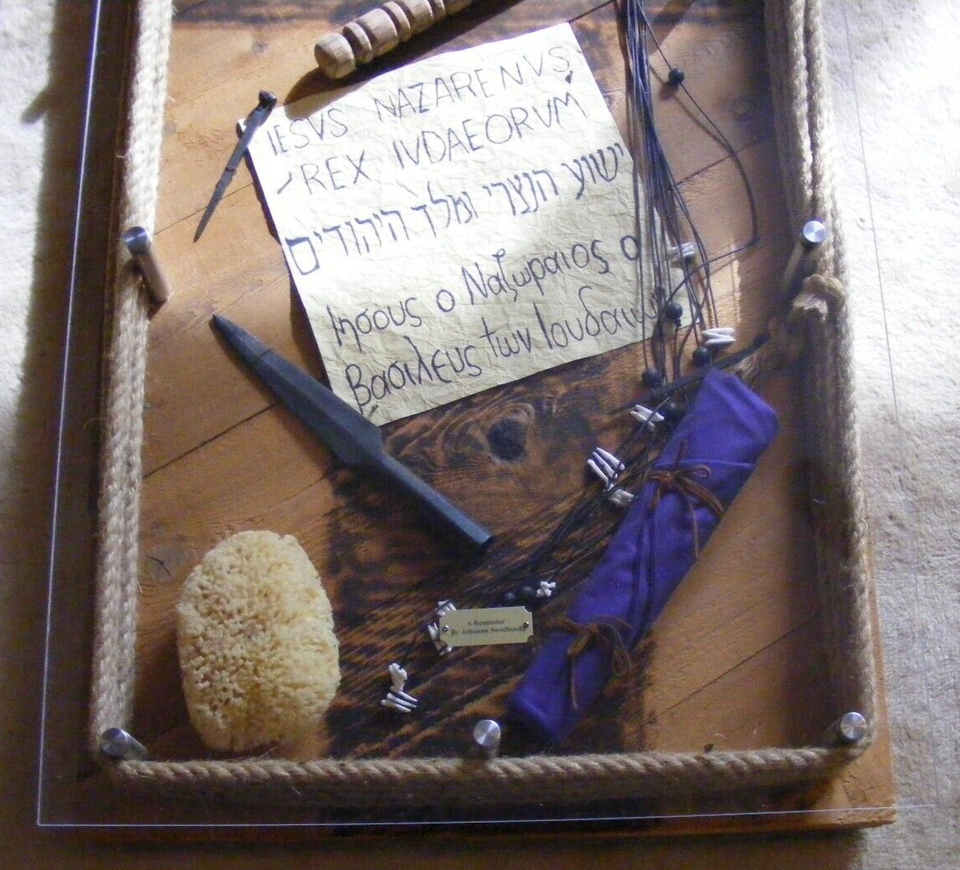 IESVS NAZARENVS
REX IVDAEORVM
ישוע הנצרי ומלך היהודים
Ιησους ο Ναζωραιος ο
βασιλευς των Ιουδαιων
A Reminder
By